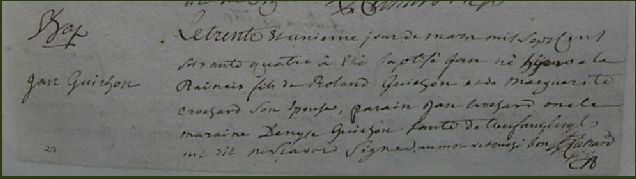 Bap
Jan Guichon
Le trente et unieme jour de mars mil sept cent
soixante quatre a été baptisé Jan né hyers a la
Rainais fils de Roland Guichon et de Marguerite
Crochard son epouse, parain Jan Crochard oncle
maraine Denyse Guichon tante de l'enfant lesquels
ont dit ne scavoir signer